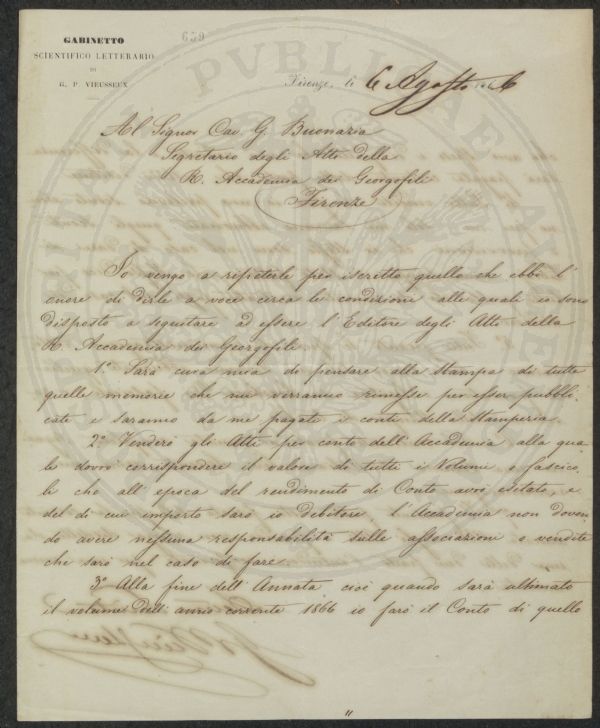 GABINETTO
SCIENTIFICO LETTERARIO
DI
G. P. VIEUSSEUX
659
Firenze, li 6 Agosto 1866
Al Signor Cav. G. Buonazia
Segretario degli Atti della
R. Accademia dei Georgofili
Firenze
Io vengo a ripeterle per iscritto quello che ebbi l'
onore di dirle a voce circa le condizioni alle quali io sono
disposto a seguitare ad essere l'Editore degli Atti della
R. Accademia dei Georgofili.
1º Sarà cura mia di pensare alla Stampa di tutte
quelle memorie che mi verranno rimesse per esser pubbli-
cate e saranno da me pagati i conti della Stamperia.
2º Venderò gli Atti per conto dell'Accademia alla qua
le dovrò corrispondere il valore di tutti i Volumi o fascico
li che all'epoca del rendimento di Conto avrò esitato, e
del di cui importo sarò io debitore l'Accademia non doven
do avere nessuna responsabilità sulle associazioni o vendite
che sarò nel caso di fare.
3º Alla fine dell'Annata cioè quando sarà ultimato
il volume dell'anno corrente 1866 io farò il Conto di quello